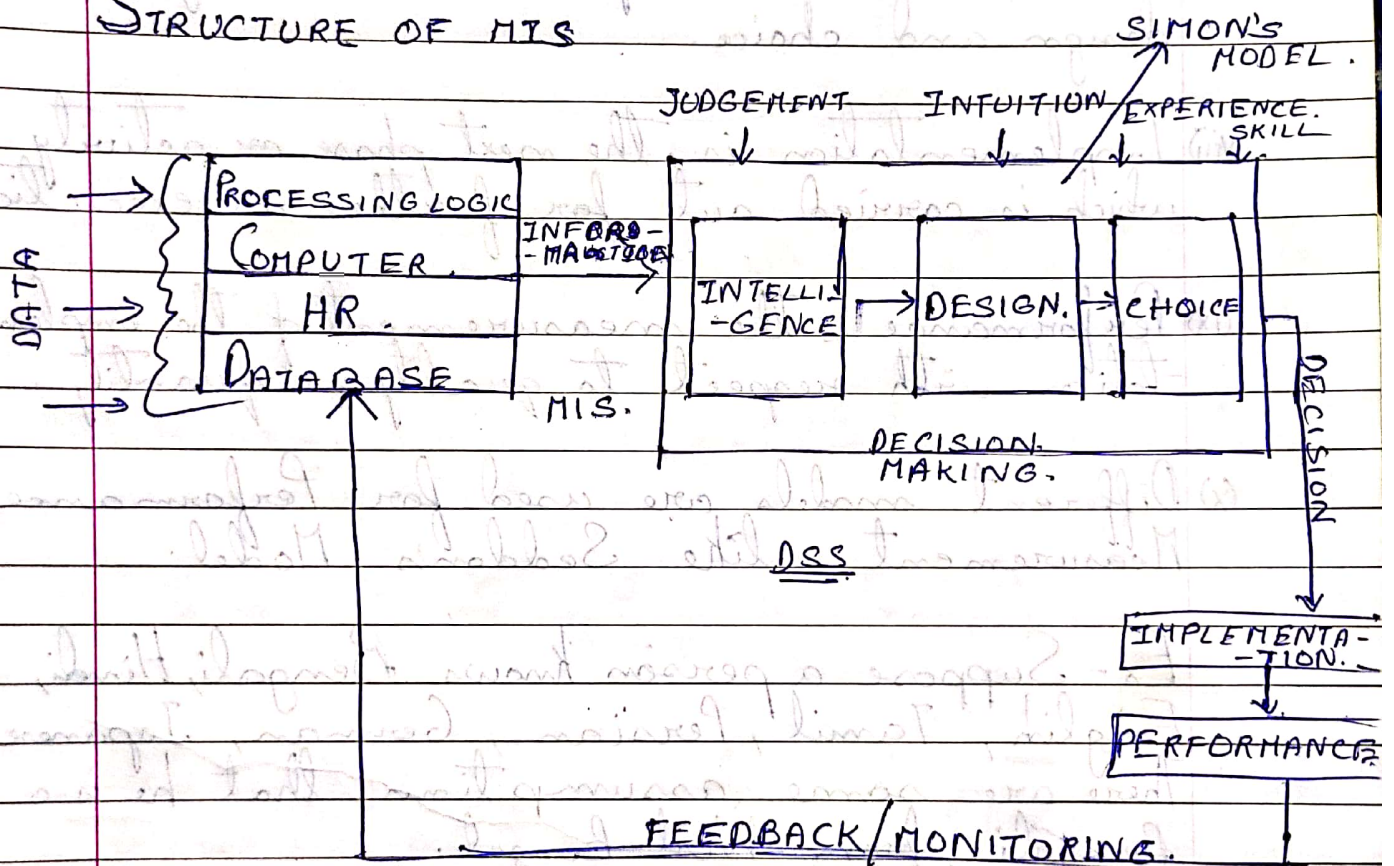 STRUCTURE OF MIS
SIMON'S
MODEL.
JUDGEMENT INTUITION EXPERIENCE.
SKILL
DATA
PROCESSING LOGIC
COMPUTER.
HR.
DATABASE
INFOR-
-MATION
MIS.
INTELLI-
-GENCE
DESIGN.
CHOICE
DECISION
MAKING.
DECISION
DSS
IMPLEMENTA-
-TION.
PERFORMANCE
FEEDBACK/MONITORING.